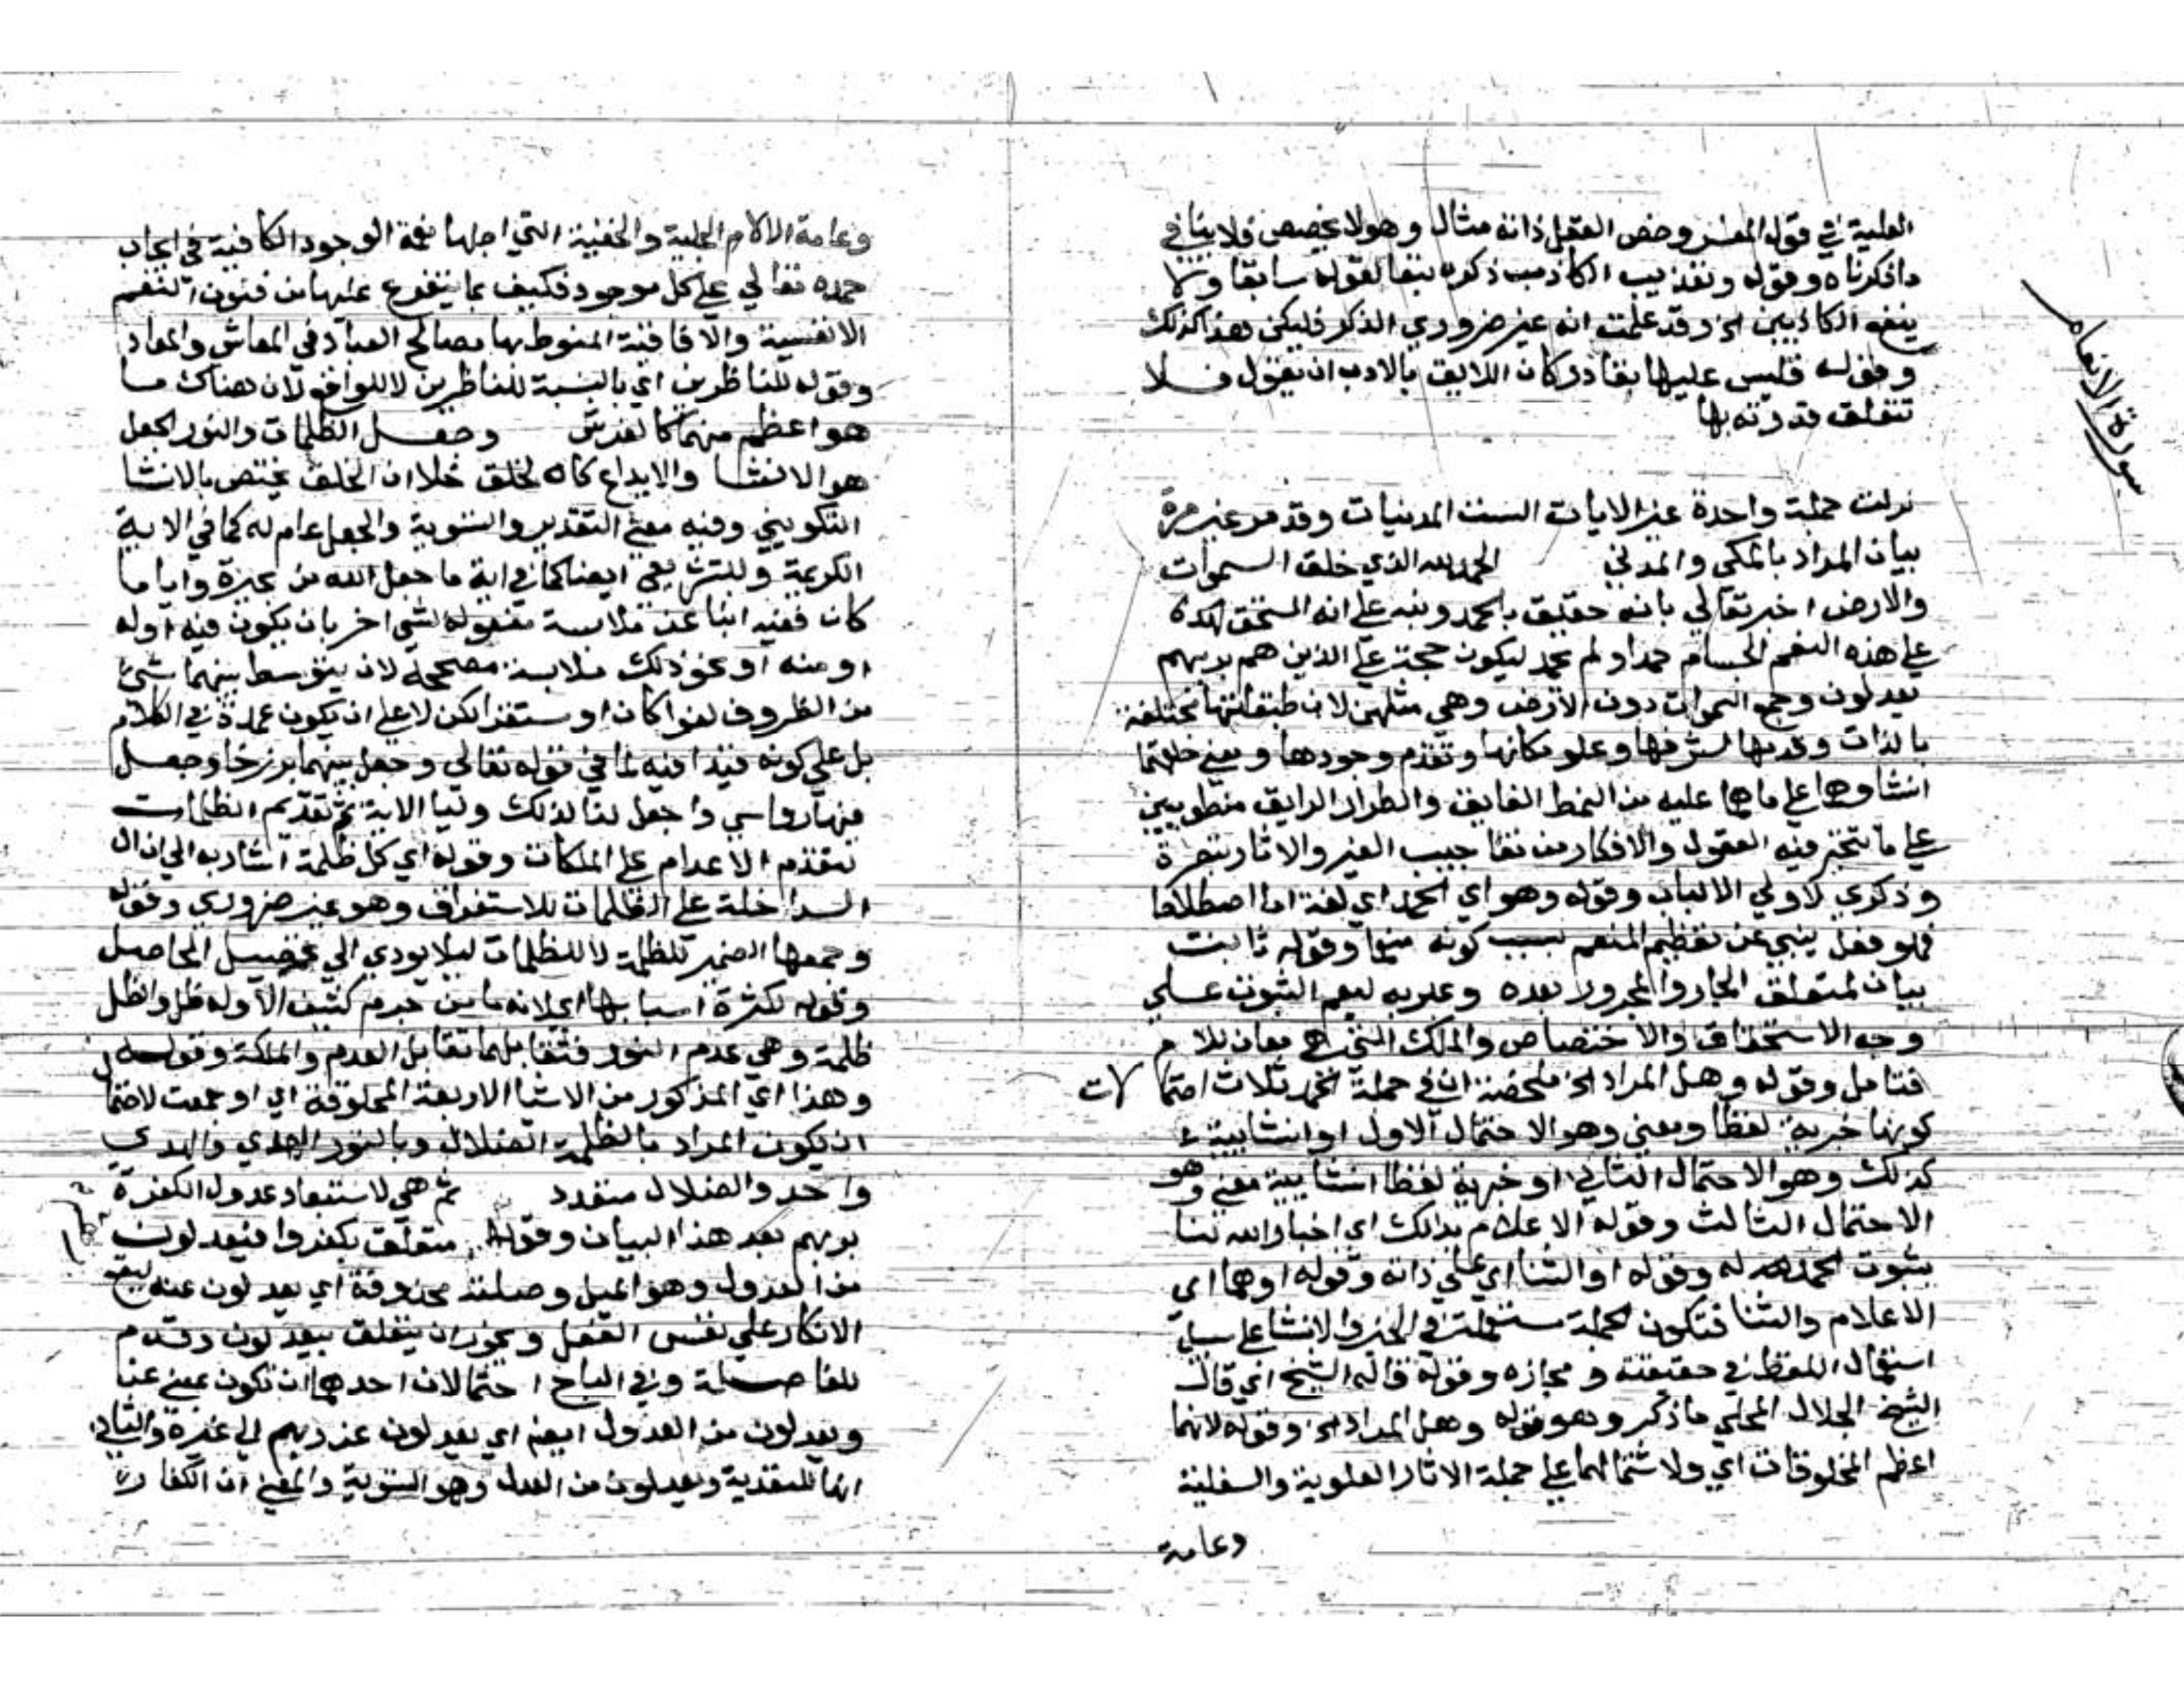 سورة الانعام
العلية في قوله المفسر وخص العقل ذاته مثال وهو لا يخصص فلا ينافي
ماذكرناه وقوله وتعذيب الكاذب ذكره تبعا لقوله سابقا ولا
ينفع الكاذبين الخ وقد علمت انه غير ضروري الذكر فليكن هذا كذلك
وقوله فليس عليها بقادر كان اللايق بالادب ان يقول فلا
تتعلق قدرته بها
نزلت جملة واحدة غير الايات الست المدنيات وقد مر غير مرة
بيان المراد بالمكي والمدني الحمد لله الذي خلق السموات
والارض اخبر تعالي بانه حقيق بالحمد ونبه علي انه المستحق له
علي هذه النعم الجسام حمد او لم يحمد ليكون حجة علي الذين هم بربهم
يعدلون وجمع السموات دون الارض وهي مثلهن لان طبقاتها مختلفة
بالذات وقدمها لشرفها وعلو مكانها وتقدم وجودها ومعني خلقهما
انشاوهما علي ما هما عليه من النمط الفايق والطراز الرايق منطويين
علي ما تتحير فيه العقول والافكار من تعاجيب العبر والاثار تبصرة
وذكري لاولي الالباب وقوله وهو اي الحمد اي لغة اما اصطلاحا
فهو فعل ينبي عن تعظيم المنعم بسبب كونه منعما وقوله ثابت
بيان لمتعلق الجار والمجرور بعده وعبر به ليعم الثبوت علي
وجه الاستحقاق والاختصاص والملك التي هي معان للام
فتامل وقوله وهل المراد الخ ملخصه ان في جملة الحمد ثلاث احتمالات
كونها خبرية لفظا ومعني وهو الاحتمال الاول او انشايية
كذلك وهو الاحتمال الثاني او خبرية لفظا انشايية معني وهو
الاحتمال الثالث وقوله الاعلام بذلك اي اخبار الله لنا
بثبوت الحمد له وقوله او الثنا اي علي ذاته وقوله او هما اي
الاعلام والثنا فتكون الجملة مستعملة في الخبر والانشا علي سبيل
استعمال اللفظ في حقيقته ومجازه وقوله قاله الشيخ اي قال
الشيخ الجلال المحلي ما ذكر وهو قوله وهل المراد الخ وقوله لانهما
اعظم المخلوقات اي ولاشتمالهما علي جملة الاثار العلوية والسفلية
وعامة
وعامة الالام الجلية والخفية التي اجلها نعمة الوجود الكافية في ايجاب
حمده تعالي علي كل موجود فكيف بما يتفرع عنها من فنون النعم
الانفسية والافاقية المنوط بها مصالح العباد في المعاش والمعاد
وقوله للناظرين اي بالنسبة للناظرين لا للواقع لان هناك ما
هو اعظم منهما كالعرش وجعل الظلمات والنور الجعل
هو الانشا والابداع كالخلق خلا ان الخلق مختص بالانشا
التكويني وفيه معني التقدير والتسوية والجعل عام له كما في الاية
الكريمة وللتشريعي ايضا كما في اية ما جعل الله من بحيرة وايا ما
كان ففيه انبا عن ملابسة مفعوله لشي اخر بان يكون فيه اوله
او منه او نحو ذلك ملابسة مصححة لان يتوسط بينهما شي
من الظروف لغوا كان او مستقرا لكن لا علي ان يكون عمدة في الكلام
بل علي كونه قيدا فيه كما في قوله تعالي وجعل بينهما برزخا وجعل
فيها رواسي واجعل لنا من لدنك وليا الاية ثم تقديم الظلمات
لتقدم الاعدام علي الملكات وقوله اي كل ظلمة اشار به الي ان ال
الداخلة علي الظلمات للاستغراق وهو غير ضروري وقوله
وجمعها الضمير للظلمة لا للظلمات ليلا يودي الي تحصيل الحاصل
وقوله لكثرة اسبابها اي لانه ما من جرم كثيف الا وله ظل والظل
ظلمة وهي عدم النور فتقابلهما تقابل العدم والملكة وقوله
وهذا اي المذكور من الاشيا الاربعة المخلوقة اي او جمعت لاحتمال
ان يكون المراد بالظلمة الضلال وبالنور الهدي والهدي
واحد والضلال متعدد ثم هي لاستبعاد عدول الكفرة
بربهم بعد هذا البيان وقوله متعلق بكفروا فيعدلون
من العدول وهو الميل وصلته محذوفة اي يعدلون عنه ليقع
الانكار علي نفس الفعل ويجوز ان يتعلق بيعدلون وقدم
للفاصلة وفي الباح احتمالان احدهما ان تكون بمعني عن
ويعدلون من العدول ايضا اي يعدلون عن ربهم الي غيره والثاني
انها للتعدية ويعدلون من العدل وهو التسوية والمعني ان الكفار